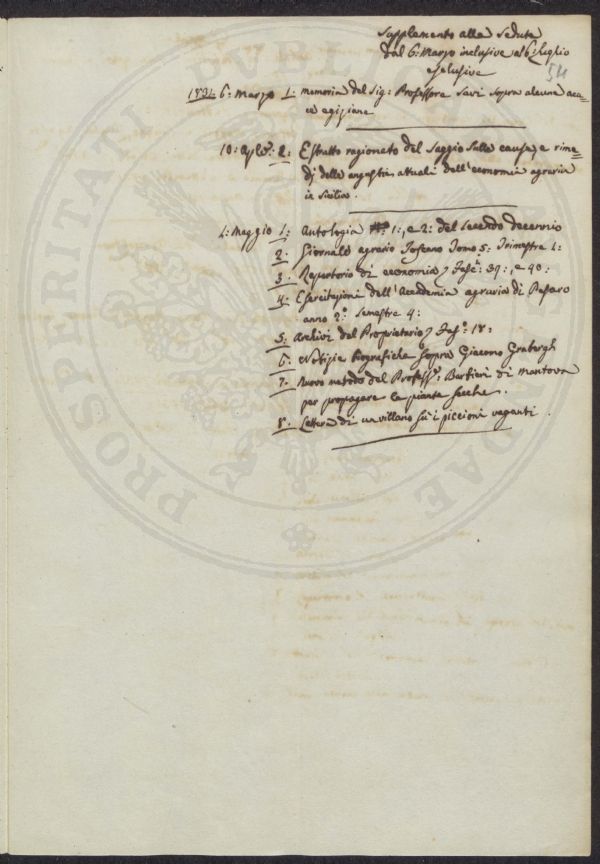 Supplemento alla Seduta
dal 6: Marzo inclusive al 6: Luglio
esclusive
54
1831. 6: Marzo 1: Memoria del Sig: Professore Savi sopra alcune aca=
cie egiziane
10: Aple: 2: Estratto ragionato del Saggio sulle cause, e rime=
dj delle angustie attuali dell'economia agraria
in Sicilia.
4: Maggio 1: Antologia 1:, e 2: del secondo decennio
2: Giornale agrario Toscano Tomo 5: Trimestre 1:
3: Repertorio di economia, Fasc: 39:, e 40:
4: Esercitazioni dell'Accademia agraria di Pesaro
anno 2: Semestre 4:
5: Archivi del Proprietario, Fas: 18:
6: Notizie biografiche sopra Giacomo Grabergh
7: Nuovo metodo del Profess: Barbieri di Mantova
per propagare le piante secche.
8: Lettera di un villano su i piccioni vaganti.
PROSPERITATI PUBLICAE